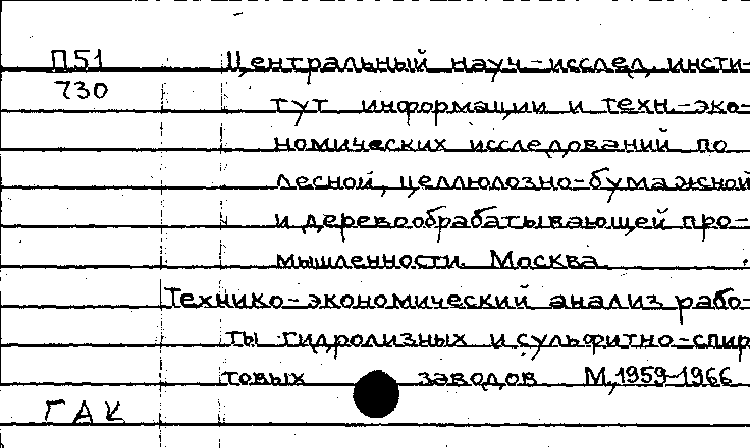 П51 Центральный науч-исслед. инсти-
730 тут информации и техн.-эко-
номических исследований по
лесной, целлюлозно-бумажной
и деревообрабатывающей про-
мышленности. Москва.
Технико-экономический анализ рабо-
ты гидролизных и сульфитно-спир
товых заводов М., 1959-1966
ГАК